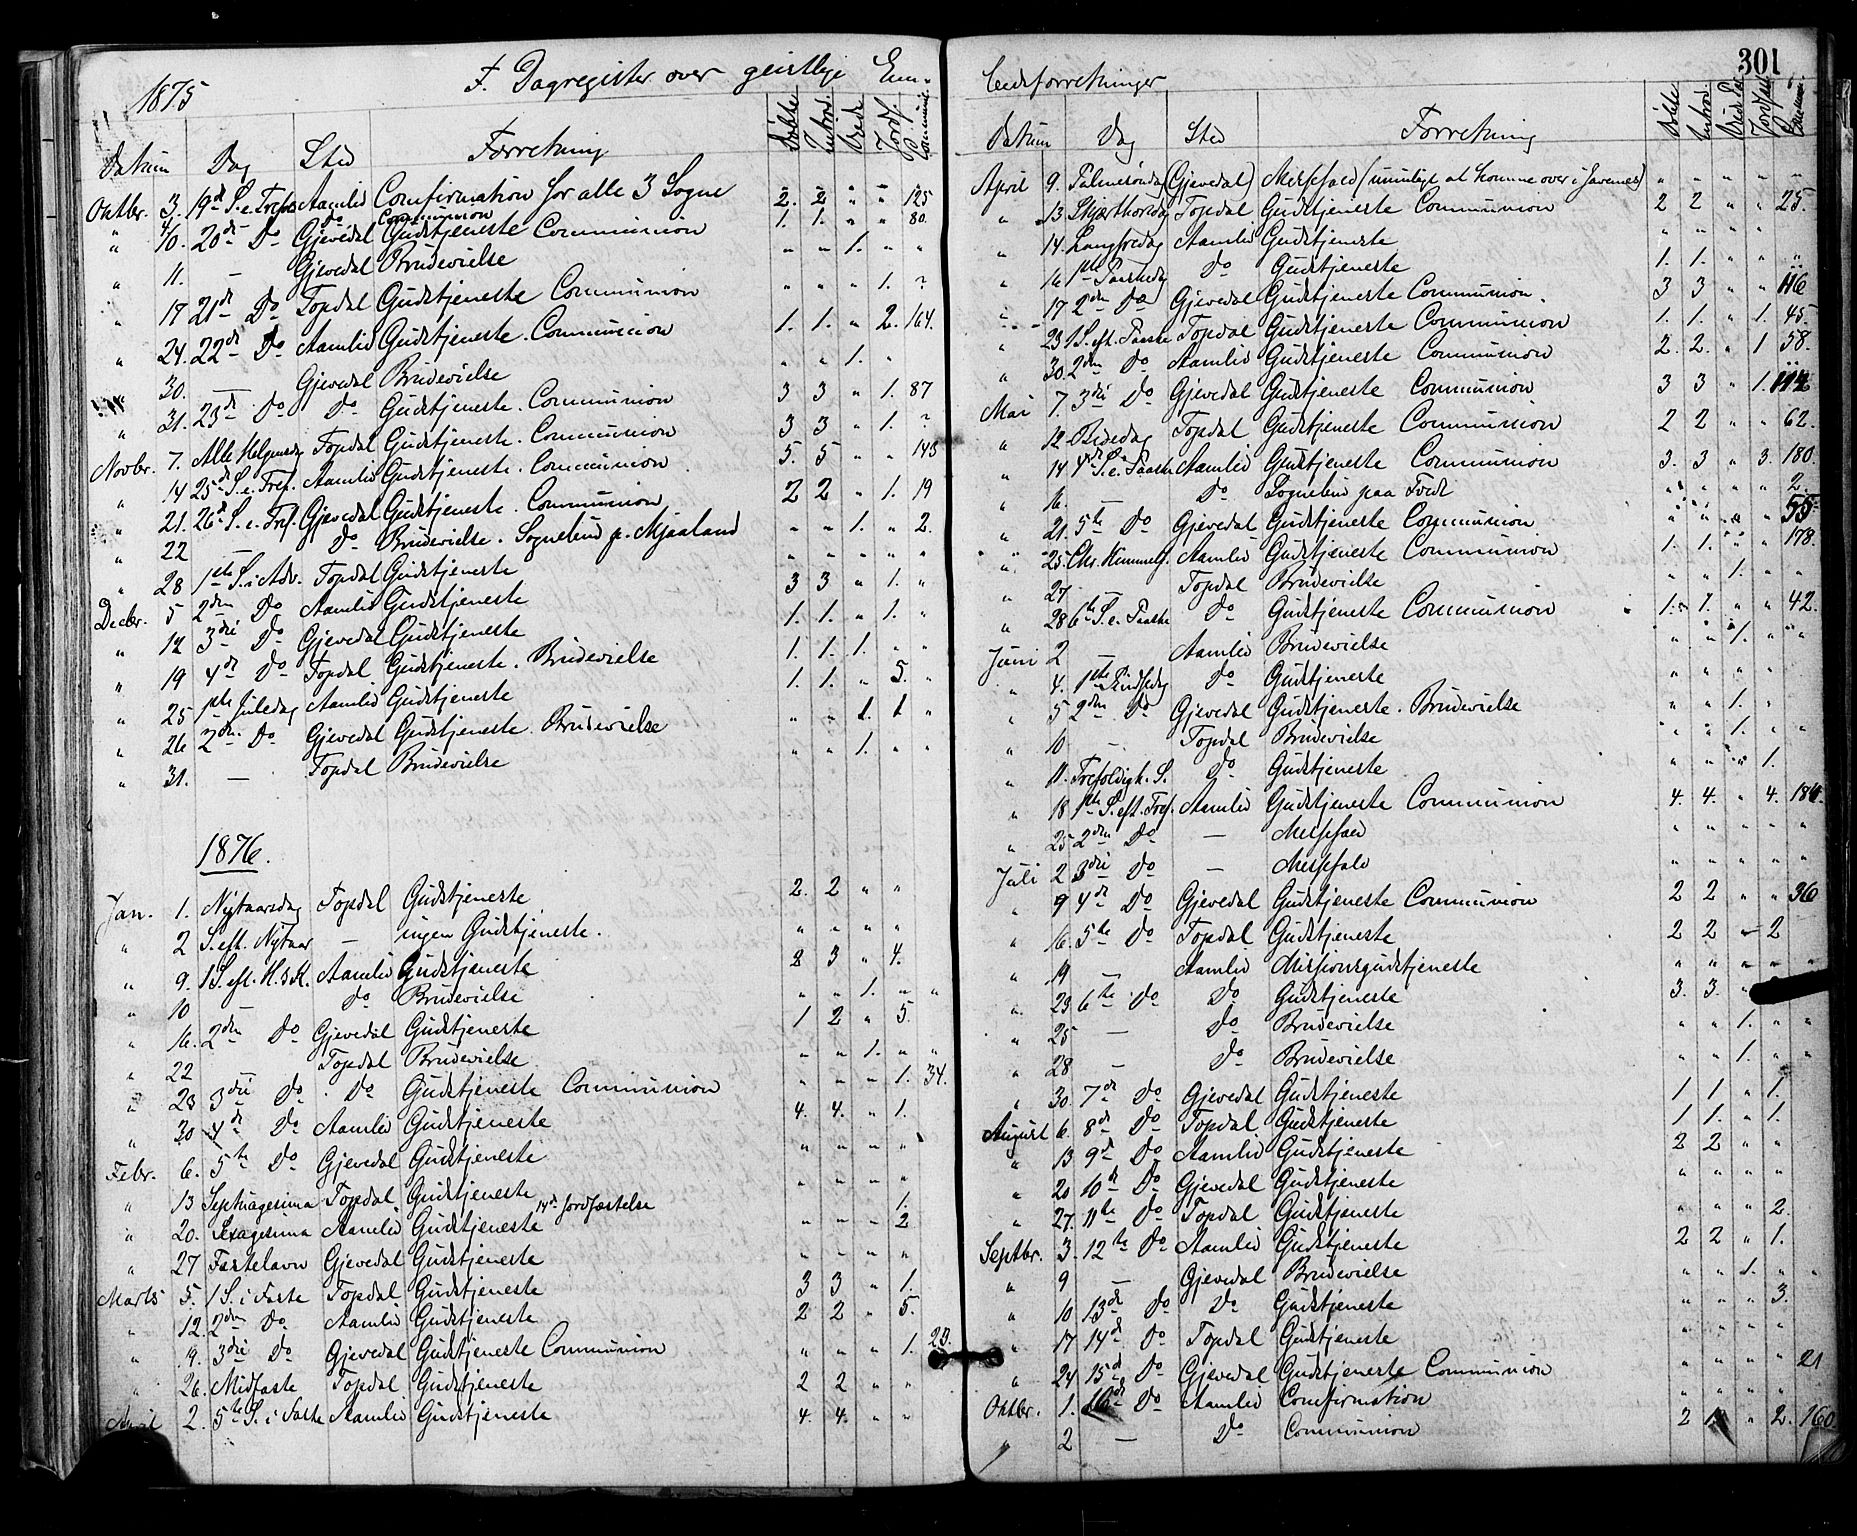 301
1875 F. Dagregister over geistlige Em-
bedsforretninger
Datum Dag Sted Forretning Døbte Introd. Viede Jordf. Communic.
Oktbr. 3. 19d S. e. Tref. Aamlid Confirmation for alle 3 Sogne 2. 2 " " 125
" 4 do Communion
" 10. 20de Do Gjevedal Gudstjeneste Communion 1. 1. " " 80.
" 11. — Gjevedal Brudevielse " " 1. " "
" 17 21de Do Topdal Gudstjeneste Communion " " " 1. ?
" 24. 22de Do Aamlid Gudstjeneste. Communion 1. 1. " 2. 164.
" 30. — Gjevedal Brudevielse " " 1. "
" 31. 23de Do Do Gudstjeneste. Communion 3 3 " 1. 87
Novbr. 7. Alle Helgensdag Topdal Gudstjeneste. Communion 3 3 " 1. ?
" 14 25d S. e. Tref. Aamlid Gudstjeneste. Communion 5. 5 " " 145
" 21. 26d S. e. Tref. Gjevedal Gudstjeneste. Communion 2 2 " 1. 19
" 22 do Brudevielse. Sognebud p. Mjaaland " " 1. " 2.
" 28 1ste S. i Adv. Topdal Gudstjeneste " " " " "
Decbr. 5 2den Do Aamlid Gudstjeneste 3 3 " 1. "
" 12 3die Do Gjevedal Gudstjeneste 1. 1. " 1. "
" 19 4de Do Topdal Gudstjeneste. Brudevielse 1. 1. 1. " "
" 25 1ste Juledag Aamlid Gudstjeneste 1. 1. " 5. "
" 26 2den Do Gjevedal Gudstjeneste. Brudevielse " " 1. 1 "
" 31. — Topdal Brudevielse " " 1. " "
1876.
Jan. 1. Nytaarsdag Topdal Gudstjeneste 2. 2 " "
" 2 S. eft. Nytaar — ingen Gudstjeneste. " " " "
" 9. 1 S. eft. H. 3 K. Aamlid Gudstjeneste 2 3 " 4.
" 10 — do Brudevielse " " 1. " "
" 16. 2den Do Gjevedal Gudstjeneste 1 2 " 5.
" 22 — Topdal Brudevielse " " 1. " "
" 23 3die Do Do Gudstjeneste Communion " " " 1. 34.
" 30 4de Do Aamlid Gudstjeneste 4. 4. " 1.
Febr. 6. 5te Do Gjevedal Gudstjeneste " " " "
" 13 Septuagesima Topdal Gudstjeneste " " " "
14d Jordfæstelse 1.
" 20. Sexagesima Aamlid Gudstjeneste " " " 2
" 27 Fastelavn Gjevedal Gudstjeneste " " " "
Marts 5. 1 S. i Faste Topdal Gudstjeneste 3 3 " 1.
" 12. 2den Do Aamlid Gudstjeneste 2 2 " 5.
" 19. 3die Do Gjevedal Gudstjeneste Communion " " " 1. 23.
" 26. Midfaste Topdal Gudstjeneste 2 2 " "
April 2. 5te S. i Faste Aamlid Gudstjeneste 4. 4. " "
Datum Dag Sted Forretning Døbte Introd. Viede Jordf. Commun.
April 9. Palmesøndag (Gjevedal) Messefald (umuligt at komme over i " " " " "
" 13 Skjærthorsdag Topdal Gudstjeneste Communion 2 2 " " 25.
" 14. Langfredag Aamlid Gudstjeneste " " " "
" 16 1ste Paaskedag Do Gudstjeneste 1. 1. " " "
" 17 2den Do Gjevedal Gudstjeneste Communion. 3 3 " " 116
" 23 1 S. eft. Paaske Topdal Gudstjeneste Communion 1. 1. " 1. 45.
" 30. 2den Do Aamlid Gudstjeneste Communion 2. 2. " 1 58.
Mai 7. 3die Do Gjevedal Gudstjeneste Communion 3 3 " 1. 112
" 12 Bededag Topdal Gudstjeneste Communion 2 2 " " 62.
" 14 4de S. e. Paaske Aamlid Gudstjeneste Communion 3. 3 " 3. 180.
" 16. — Do Sognebud paa Tvedt " " " " 2.
" 21. 5te Do Gjevedal Gudstjeneste Communion " " " " 55
" 25. Chr. Himmelf. Aamlid Gudstjeneste Communion 1. 1. " " 178.
" 27 — Topdal Brudevielse " " 1. " "
" 28 6te S. e. Paaske Do Gudstjeneste Communion 1. 1. " " 42.
Juni 2 — Aamlid Brudevielse " " 1. " "
" 4. 1ste Pindsedag Do Gudstjeneste " " " "
" 5 2den Do Gjevedal Gudstjeneste. Brudevielse " " 1. "
" 10 — Topdal Brudevielse " " 1. " "
" 11. Trefoldigh. S. Do Gudstjeneste " " " 1.
" 18 1ste S. eft. Tref. Aamlid Gudstjeneste Communion 4. 4. " 4.
" 25 2den Do — Messefald " " " " "
Juli 2 3die Do — Messefald " " " " "
" 9 4de Do Gjevedal Gudstjeneste Communion 2 2 " " 36
" 16. 5te Do Topdal Gudstjeneste 2 2 — 2
" 19 — Aamlid Missionsgudstjeneste " " — —
" 23 6te Do Do Gudstjeneste 3. 3. "
" 25 — Do Brudevielse " " 1. " "
" 28 — Do Brudevielse " " 1. " "
" 30. 7de Do Gjevedal Gudstjeneste 1 1 " 1.
August 6. 8de Do Topdal Gudstjeneste 1 1. " 1.
" 13 9de Do Aamlid Gudstjeneste 2 2 " "
" 20 10de Do Gjevedal Gudstjeneste " " " "
" 27. 11te Do Topdal Gudstjeneste " " " 2.
Septbr. 3. 12te Do Aamlid Gudstjeneste 2 2 " 1.
" 9 — Gjevedal Brudevielse " " 1. " "
" 10 13de Do Do Gudstjeneste " " " 3.
" 17 14de Do Topdal Gudstjeneste " " " "
" 24 15de Do Gjevedal Gudstjeneste Communion " " " " 21
Oktbr. 1. 16de Do Aamlid Confirmation " " " "
" 2 — Do Communion 2 " 2. 160.